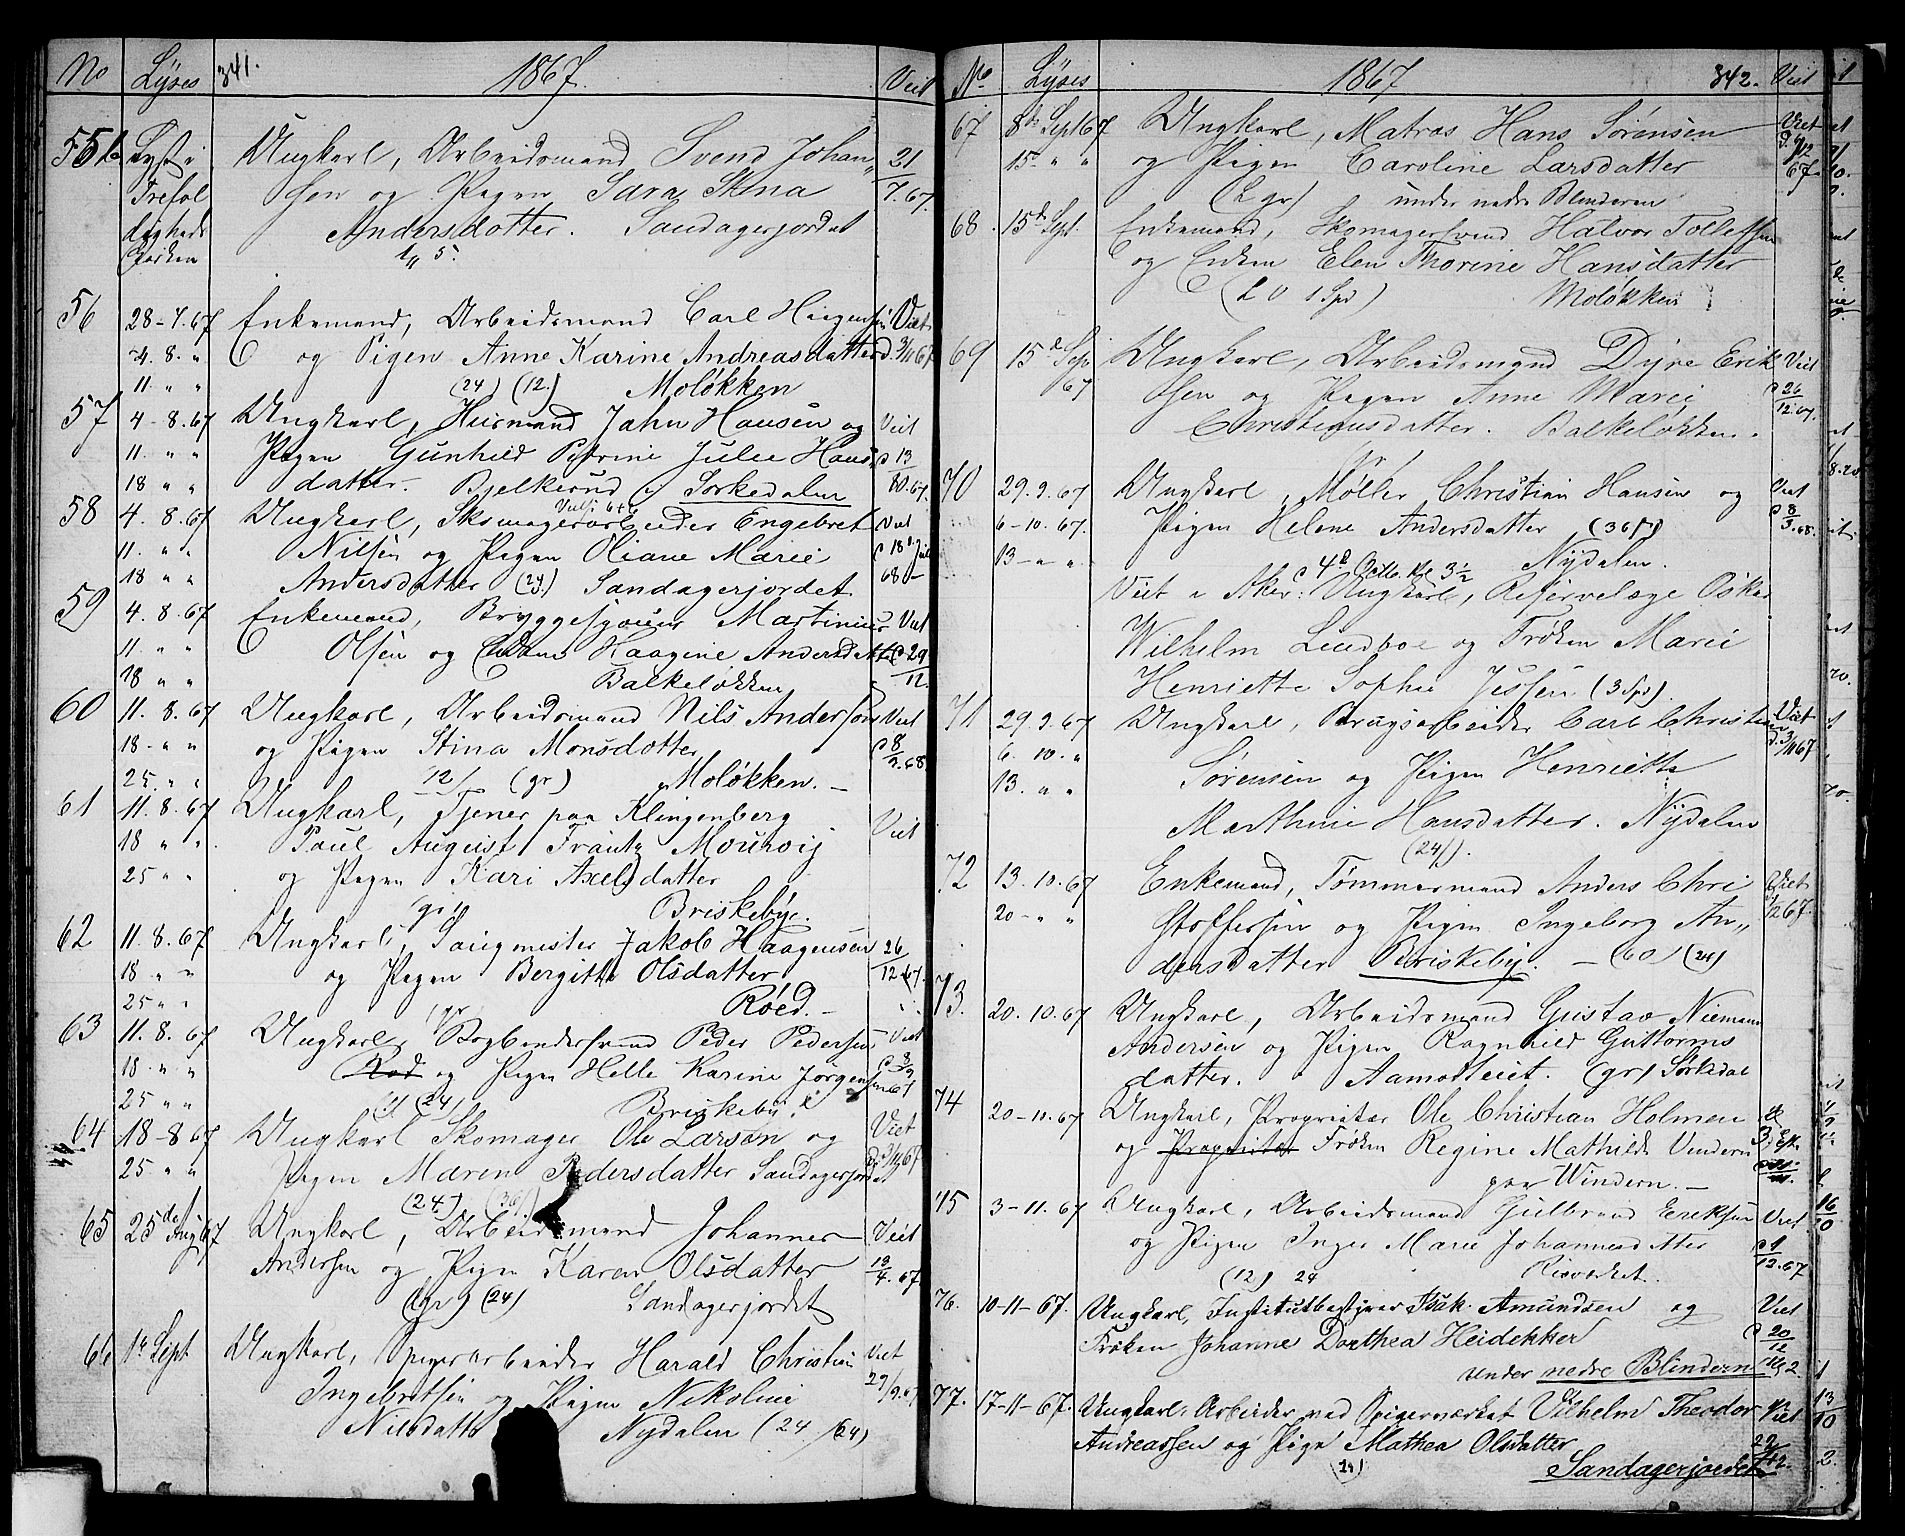 No Lyses 341. 1867. Viet
55 b Lyst i Ungkarl, Arbeidsmand Svend Johan„ 21
Trefol sen og Pigen Sara Stina 7.67.
digheds Andersdotter. Sandagerjordet
Kirken 1„ 5.
56 28-7.67 Enkemand, Arbeidsmand Carl Haagensen Viet
4. 8. " og Pigen Anne Karine Andreasdatter d. 3/11 67
11. " " (24) (12.) Moløkken
57 4-8.67 Ungkarl, Husmand Jahn Hansen og Viet
11. " " Pigen Gunhild Petrine Julie Hans d 13
18 " " datter. Bjelkerud i Sørkedalen 10.67.
58 4. 8.67 Ungkarl, Skomagerarbeider Engebret Viet
11. " " Nilsen og Pigen Oliane Marie d 18 Juli
18 " " Andersdatter (24) Sandagerjordet 68-
59 4. 8.67 Enkemand, Bryggesvend Martinius Viet
11. " " Olsen og Enken Haagine Andersdatter d 29
18 " " Balkeløkken 12.
60 11. 8.67 Ungkarl, Arbeidsmand Nils Anderson Viet
18. " " og Pigen Stina Monsdotter d 8
25. " " 12/ (gr) Moløkken. — 9.68
61 11. 8.67 Ungkarl, Tjener paa Klingenberg
18 " ". Paul August Frantz Viet
25 " " og Pigen Kari Axelsdatter
gr Briskeby.
62 11. 8.67 Ungkarl, Saugmester Jakob Haagensen 26
18 " " og Pigen Bergitte Olsdatter 12 67.
25 " " Røed. —
63 11. 8.67 Ungkarl, Bogbindersvend Peder Pedersen Viet
18. " " Rød og Pigen Helle Karine Jørgensen d 8/9
25 " " (24) Briskeby. 67
64 18-8.67 Ungkarl Skomager Ole Larsen og Viet
25. " " Pigen Maren Pedersdatter Sandagerjordet d. 3/11 67
(24) (36)
65 25de Aug 67 Ungkarl, Arbeidsmand Johannes Viet
Andersen og Pigen Karen Olsdatter 13
(gr) (24) Sandagerjordet 4.67.
66 1te Sept Ungkarl, Spigerarbeider Harald Christian Viet
Ingebretsen og Pigen Nikoline 29/9.67
Nilsdatter Nydalen (24 (24)
No Lyses 1867 342. Viet
67 8de Sept 67 Ungkarl, Matros Hans Sørensen Viet
15- " " og Pigen Caroline Larsdatter d. 9/12
(2 gr) under nedre Blenderen 67.
68. 15de Sept. Enkemand, Skomagersvend Halvor Tollefsen
og Enken Elen Thorine Hansdatter
(20 1 Spd) Moløkken
69 15de Sep Ungkarl, Arbeidsmand Dyre Erik Viet
67 sen og Pigen Anne Marie d 26
Christiansdatter. Balkeløkken. 12.67.
70 29.9.67 Ungkarl, Møller Christian Hansen og Viet
6-10.67. Pigen Helene Andersdatter (36) d 8
13- " ". Nydalen. 3.68.
d 4de Octb. Kl 3½
Viet i Aker: Ungkarl, Reservelæge Oskar
Wilhelm Lindboe og Frøken Marie
Henriette Sophie Jessen (3 Spd).
71 29.9.67 Ungkarl, Brugsarbeider Carl Christian Viet
6. 10. " Sørensen og Pigen Henriette d. 3/11 67
13. " " Marthine Hansdatter. Nydalen
(24).
72 13.10.67 Enkemand, Tømmermand Anders Chri Viet
20- " " stoffersen og Pigen Ingeborg An„ 12 67.
dersdatter Briskeby. — (60) (24)
73. 20.10.67 Ungkarl, Arbeidsmand Gustav Niemann
Andersen og Pigen Ragnhild Guttorms
datter. Aamodteiet. (gr) Sørkedal
74 20-10.67 Ungkarl, Proprietær Ole Christian Holmen
og Proprietær Frøken Regine Mathilde Vindern
paa Windern. —
75 3-11.67 Ungkarl, Arbeidsmand Gulbrand Eriksen Viet
og Pigen Inger Marie Johannesdatter d 1
(12) 24 Risværket. 12.67
76. 10-11-67. Ungkarl, Institutbestyrer Isak Amundsen og Viet
Frøken Johanne Dorthea Heidekker d 20
under nedre Blindern 12
77. 17-11-67. Ungkarl, Arbeider ved Spigerværket Vilhelm Theodor Viet
Andreassen og Pige Mathea Olsdatter 22
24 Sandagerjordet 12.